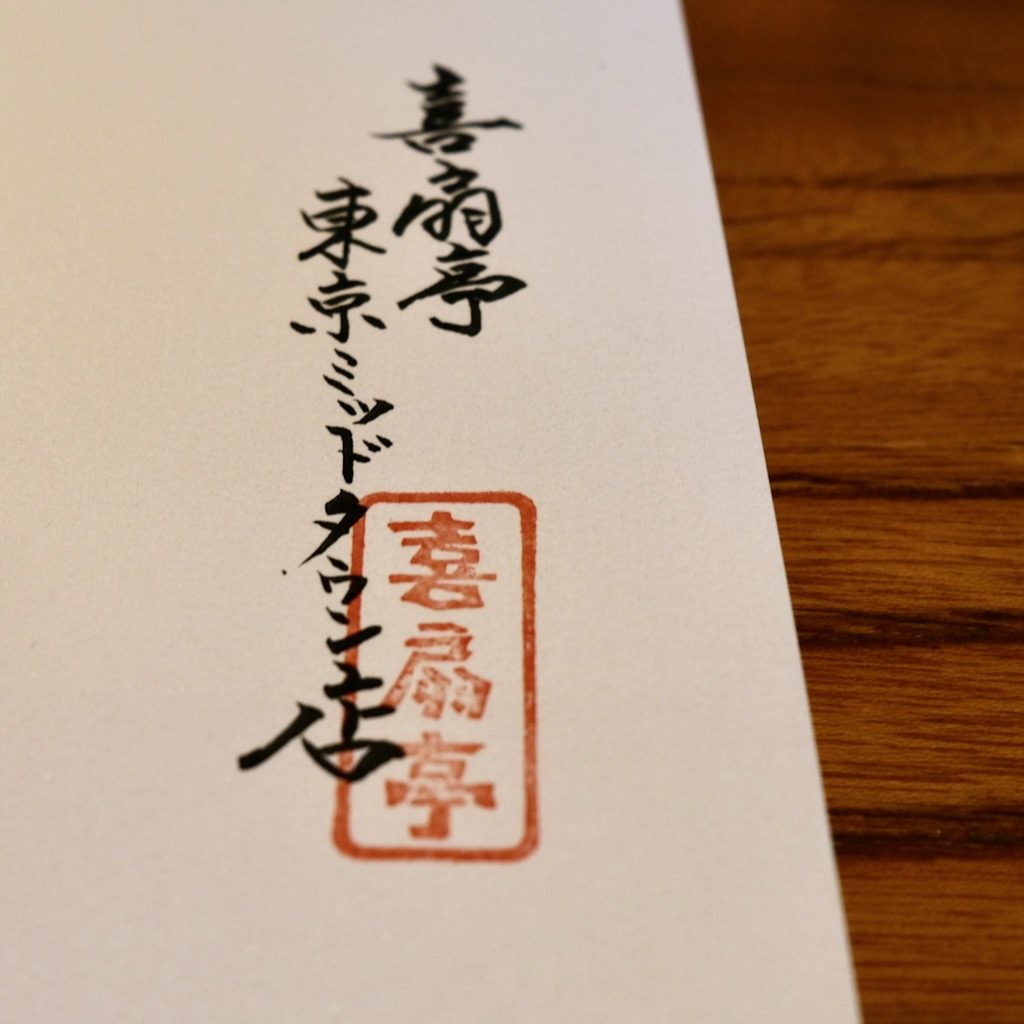 喜扇亭
東京ミッドタウン店
喜扇亭